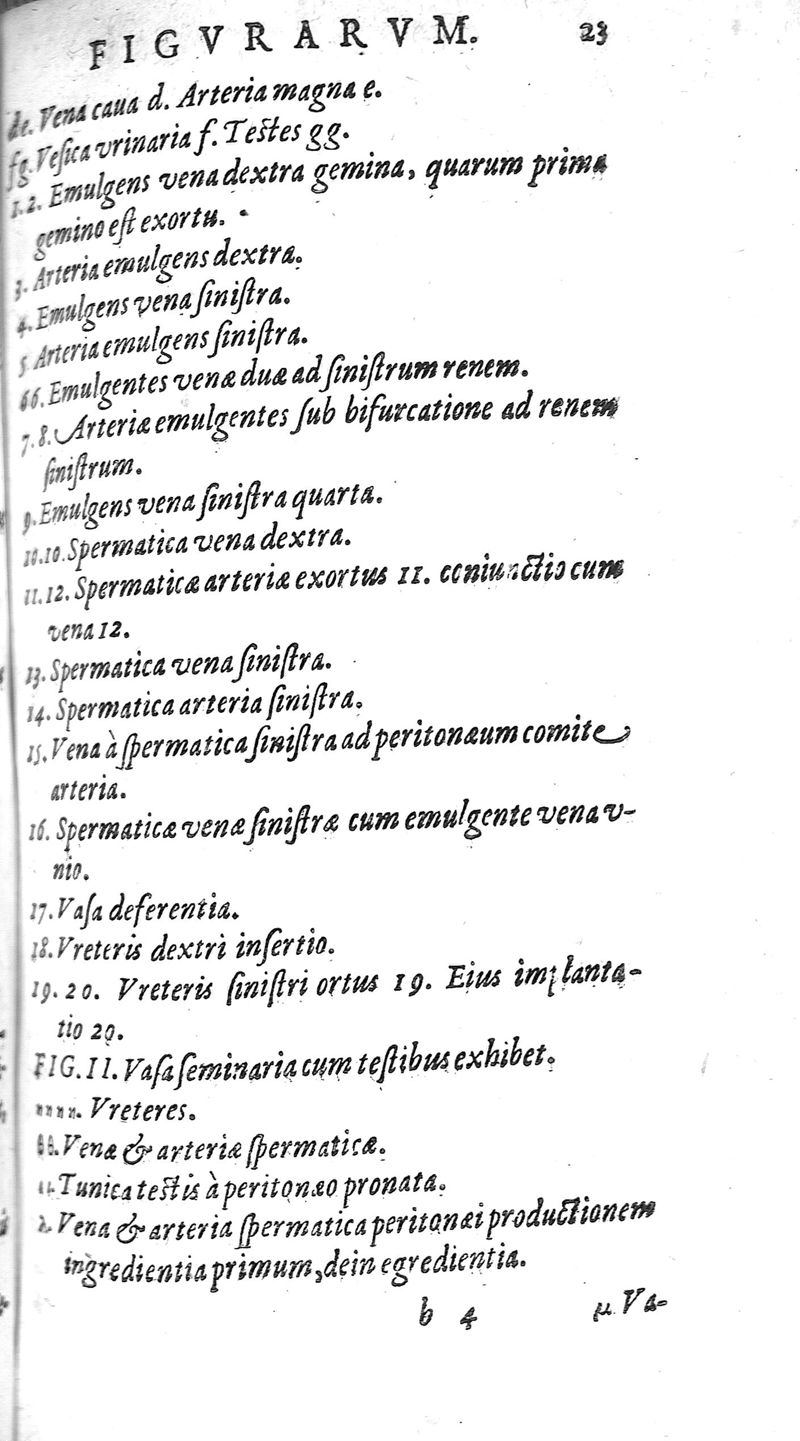 FIGVRARVM. 23
de. Vena caua d. Arteria magna e.
fg. Veſica vrinaria f. Teſtes gg.
1.2. Emulgens vena dextra gemina, quarum prima
gemino eſt exortu.
3. Arteria emulgens dextra.
4. Emulgens vena ſiniſtra.
5 Arteria emulgens ſiniſtra.
66. Emulgentes venæ duæ ad ſiniſtrum renem.
7.8. Arteriæ emulgentes ſub bifurcatione ad renem
ſiniſtrum.
9. Emulgens vena ſiniſtra quarta.
10.10. Spermatica vena dextra.
11.12. Spermaticæ arteriæ exortus 11. coniunctio cum
vena 12.
13. Spermatica vena ſiniſtra.
14. Spermatica arteria ſiniſtra.
15. Vena à ſpermatica ſiniſtra ad peritonæum comite
arteria.
16. Spermaticæ venæ ſiniſtræ cum emulgente vena v-
nio.
17. Vaſa deferentia.
18. Vreteris dextri inſertio.
19. 20. Vreteris ſiniſtri ortus 19. Eius implanta-
tio 20.
FIG. II. Vaſa ſeminaria cum teſtibus exhibet.
Vreteres.
Venæ & arteriæ ſpermaticæ.
Tunica teſtis à peritonæo pronata.
Vena & arteria ſpermatica peritonæi productionem
ingredientia primum, dein egredientia.
b 4 μ Va-